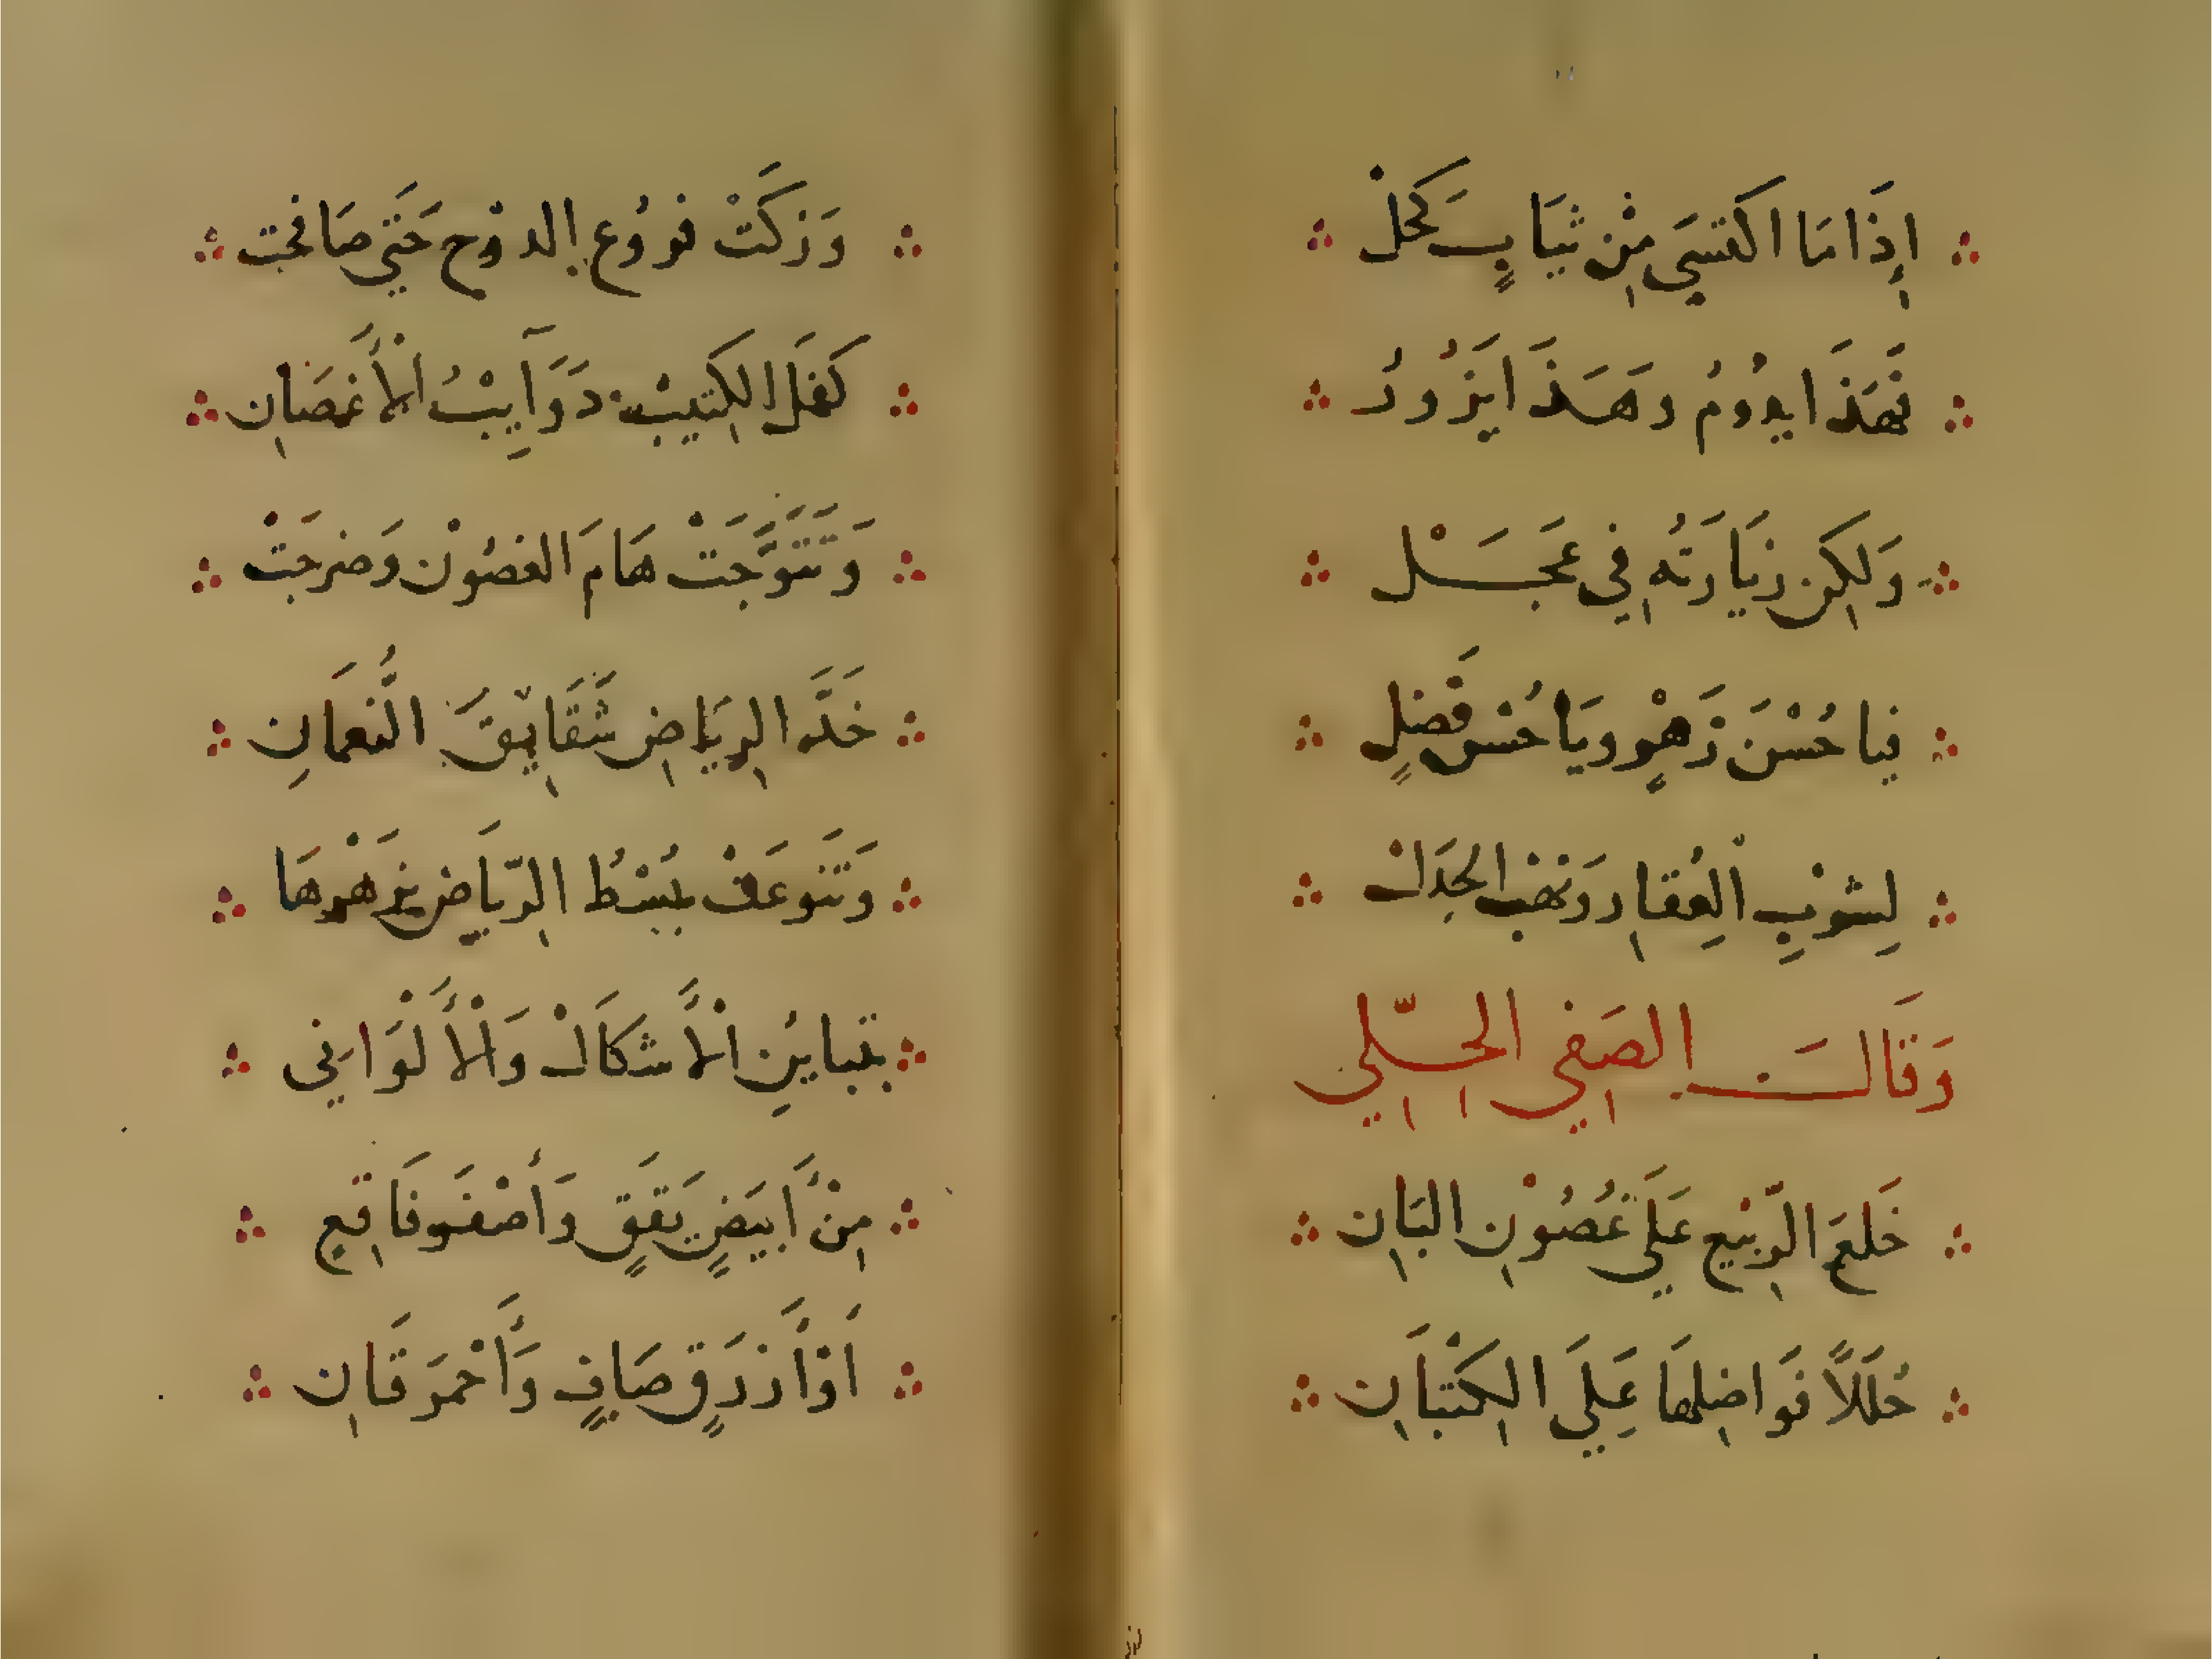 إِذَا مَا اكْتَسَي مِنْ ثِيَابٍ كَحَلْ
فَهَذَا يدُومُ وهَذَا يَزُورُ
وَلكِن زيَارَتُه فِي عَجَلْ
فيا حُسْنَ زَهْرٍ ويَا حُسْن فَضلٍ
لِشُرْبِ الْعُقَارِ وَنَهْب الجِدَالْ
وَقَالَ الصَفِي الحِلّي
خَلَعَ الرّبيع عَلَي غُصُوْنِ البَانِ
حُلَلًا فَوَاضِلهَا عَلَي الكُثْبَانِ
وَزَكَتْ فروُع الدوْح حَتَي صَافحت
كَفَلَ الكَثيبْ دَوَآيِبُ الْأَغصَانِ
وَتَتَوَّجَتْ هَامَ الغصُوْن وَضرجَتْ
خَدَّ الرِيَاضِ شَقَايِقَ النُّعمَانِ
وَتَنَوعَتْ بُسْطُ الرّيَاضِ بزَهْرهَا
بتبايُنِ الْأَشكَالْ وَالْأَلْوَانِي
مِنْ أَبيَضٍ يَقَقٍ وَأَصْفَر فَاقِعٍ
اَوْ أَزرَقٍ صَافٍ وَأَحْمَر قَانِ